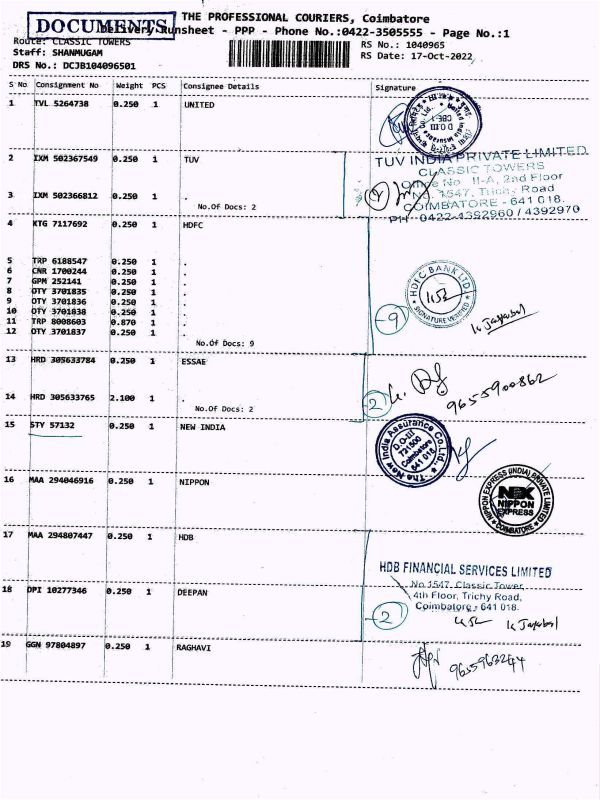 THE PROFESSIONAL COURIERS, Coimbatore
DOCUMENTS
Delivery Runsheet - PPP - Phone No.:0422-3505555 - Page No.:1
Route: CLASSIC TOWERS
RS No.: 1040965
Staff: SHANMUGAM
RS Date: 17-Oct-2022
DRS No.: DCJB104096501
S No Consignment No Weight PCS Consignee Details Signature
1 TVL 5264738 0.250 1 UNITED
2 IXM 502367549 0.250 1 TUV
TUV INDIA PRIVATE LIMITED
CLASSIC TOWERS
Office No. II-A, 2nd Floor
3 IXM 502366812 0.250 1 .
No. 1547, Trichy Road
No.Of Docs: 2
COIMBATORE - 641 018.
PH: 0422-4392960 / 4392970
4 KTG 7117692 0.250 1 HDFC
5 TRP 6188547 0.250 1 .
6 CNR 1700244 0.250 1 .
7 GPM 252141 0.250 1 .
8 OTY 3701835 0.250 1 .
9 OTY 3701836 0.250 1 .
10 OTY 3701838 0.250 1 .
11 TRP 8008603 0.870 1 .
12 OTY 3701837 0.250 1 .
No.Of Docs: 9
HDFC BANK LTD.
SIGNATURE VERIFIED
-9
13 HRD 305633784 0.250 1 ESSAE
14 HRD 305633765 2.100 1 .
No.Of Docs: 2
2
9655900862
15 STY 57132 0.250 1 NEW INDIA
The New India Assurance Co.Ltd.
D.O-III
721500
Coimbatore
641 018
16 MAA 294046916 0.250 1 NIPPON
NIPPON EXPRESS (INDIA) PRIVATE LIMITED
NEX
NIPPON
EXPRESS
COIMBATORE
17 MAA 294807447 0.250 1 HDB
HDB FINANCIAL SERVICES LIMITED
No.1547, Classic Tower,
18 DPI 10277346 0.250 1 DEEPAN
4th Floor, Trichy Road,
Coimbatore - 641 018.
-2
19 GGN 97804897 0.250 1 RAGHAVI
9655963244